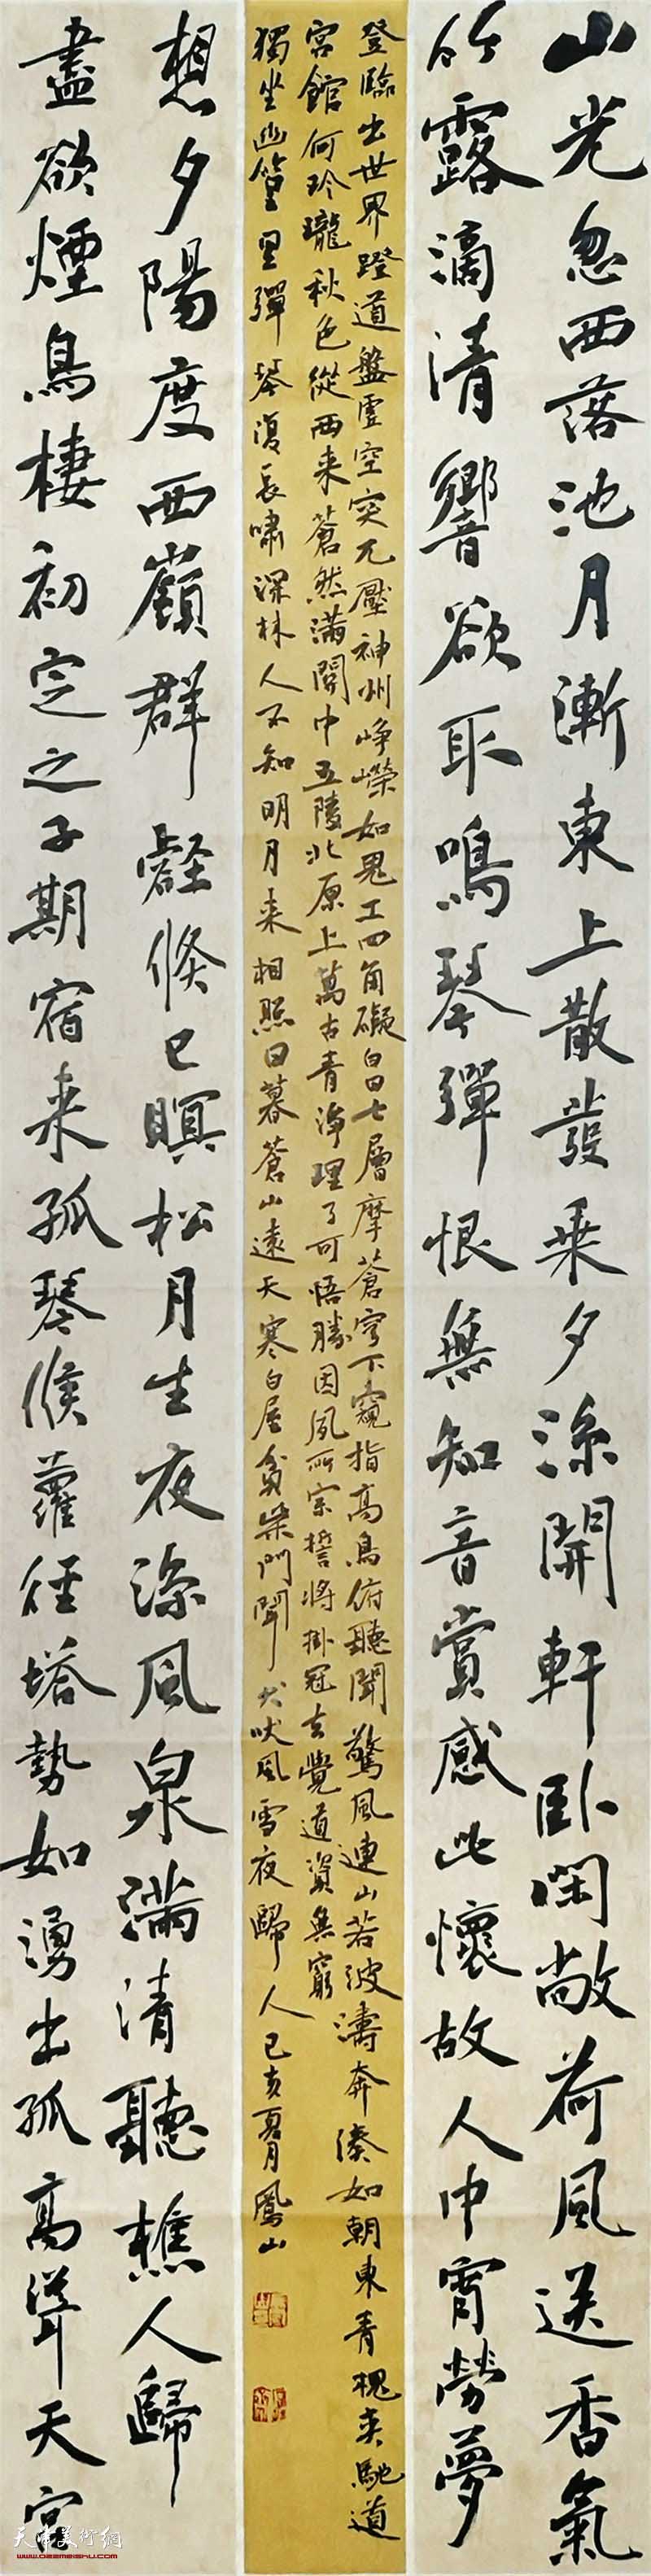 山光忽西落池月漸東上散發乘夕涼開軒卧閑敞荷風送香氣
竹露滴清響欲取鳴琴彈恨無知音賞感此懷故人中宵勞夢
想夕陽度西嶺群壑倏已暝松月生夜涼風泉滿清聽樵人歸
盡欲煙鳥棲初定之子期宿来孤琴候蘿徑塔勢如湧出孤高聳天宮
登臨出世界蹬道盤虛空突兀壓神州崢嶸如鬼工四角礙白日七層摩蒼穹下窺指高鳥俯聽聞驚風連山若波濤奔湊如朝東青槐夾馳道
宮館何玲瓏秋色從西来蒼然滿關中五陵北原上萬古青濛淨理了可悟勝因夙所宗誓將掛冠去覺道資無窮
獨坐幽篁里彈琴復長嘯深林人不知明月来相照日暮蒼山遠天寒白屋貧柴門聞犬吠風雪夜歸人己亥夏月鳳山
天津美術網
www.022meishu.com